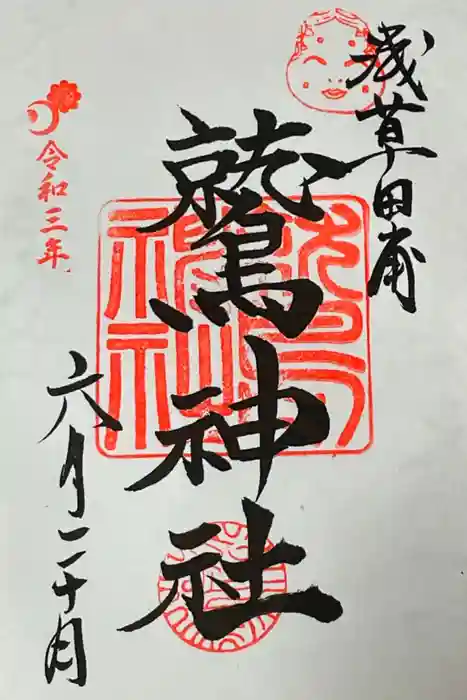 浅草田甫
鷲神社
令和三年
六月二十日